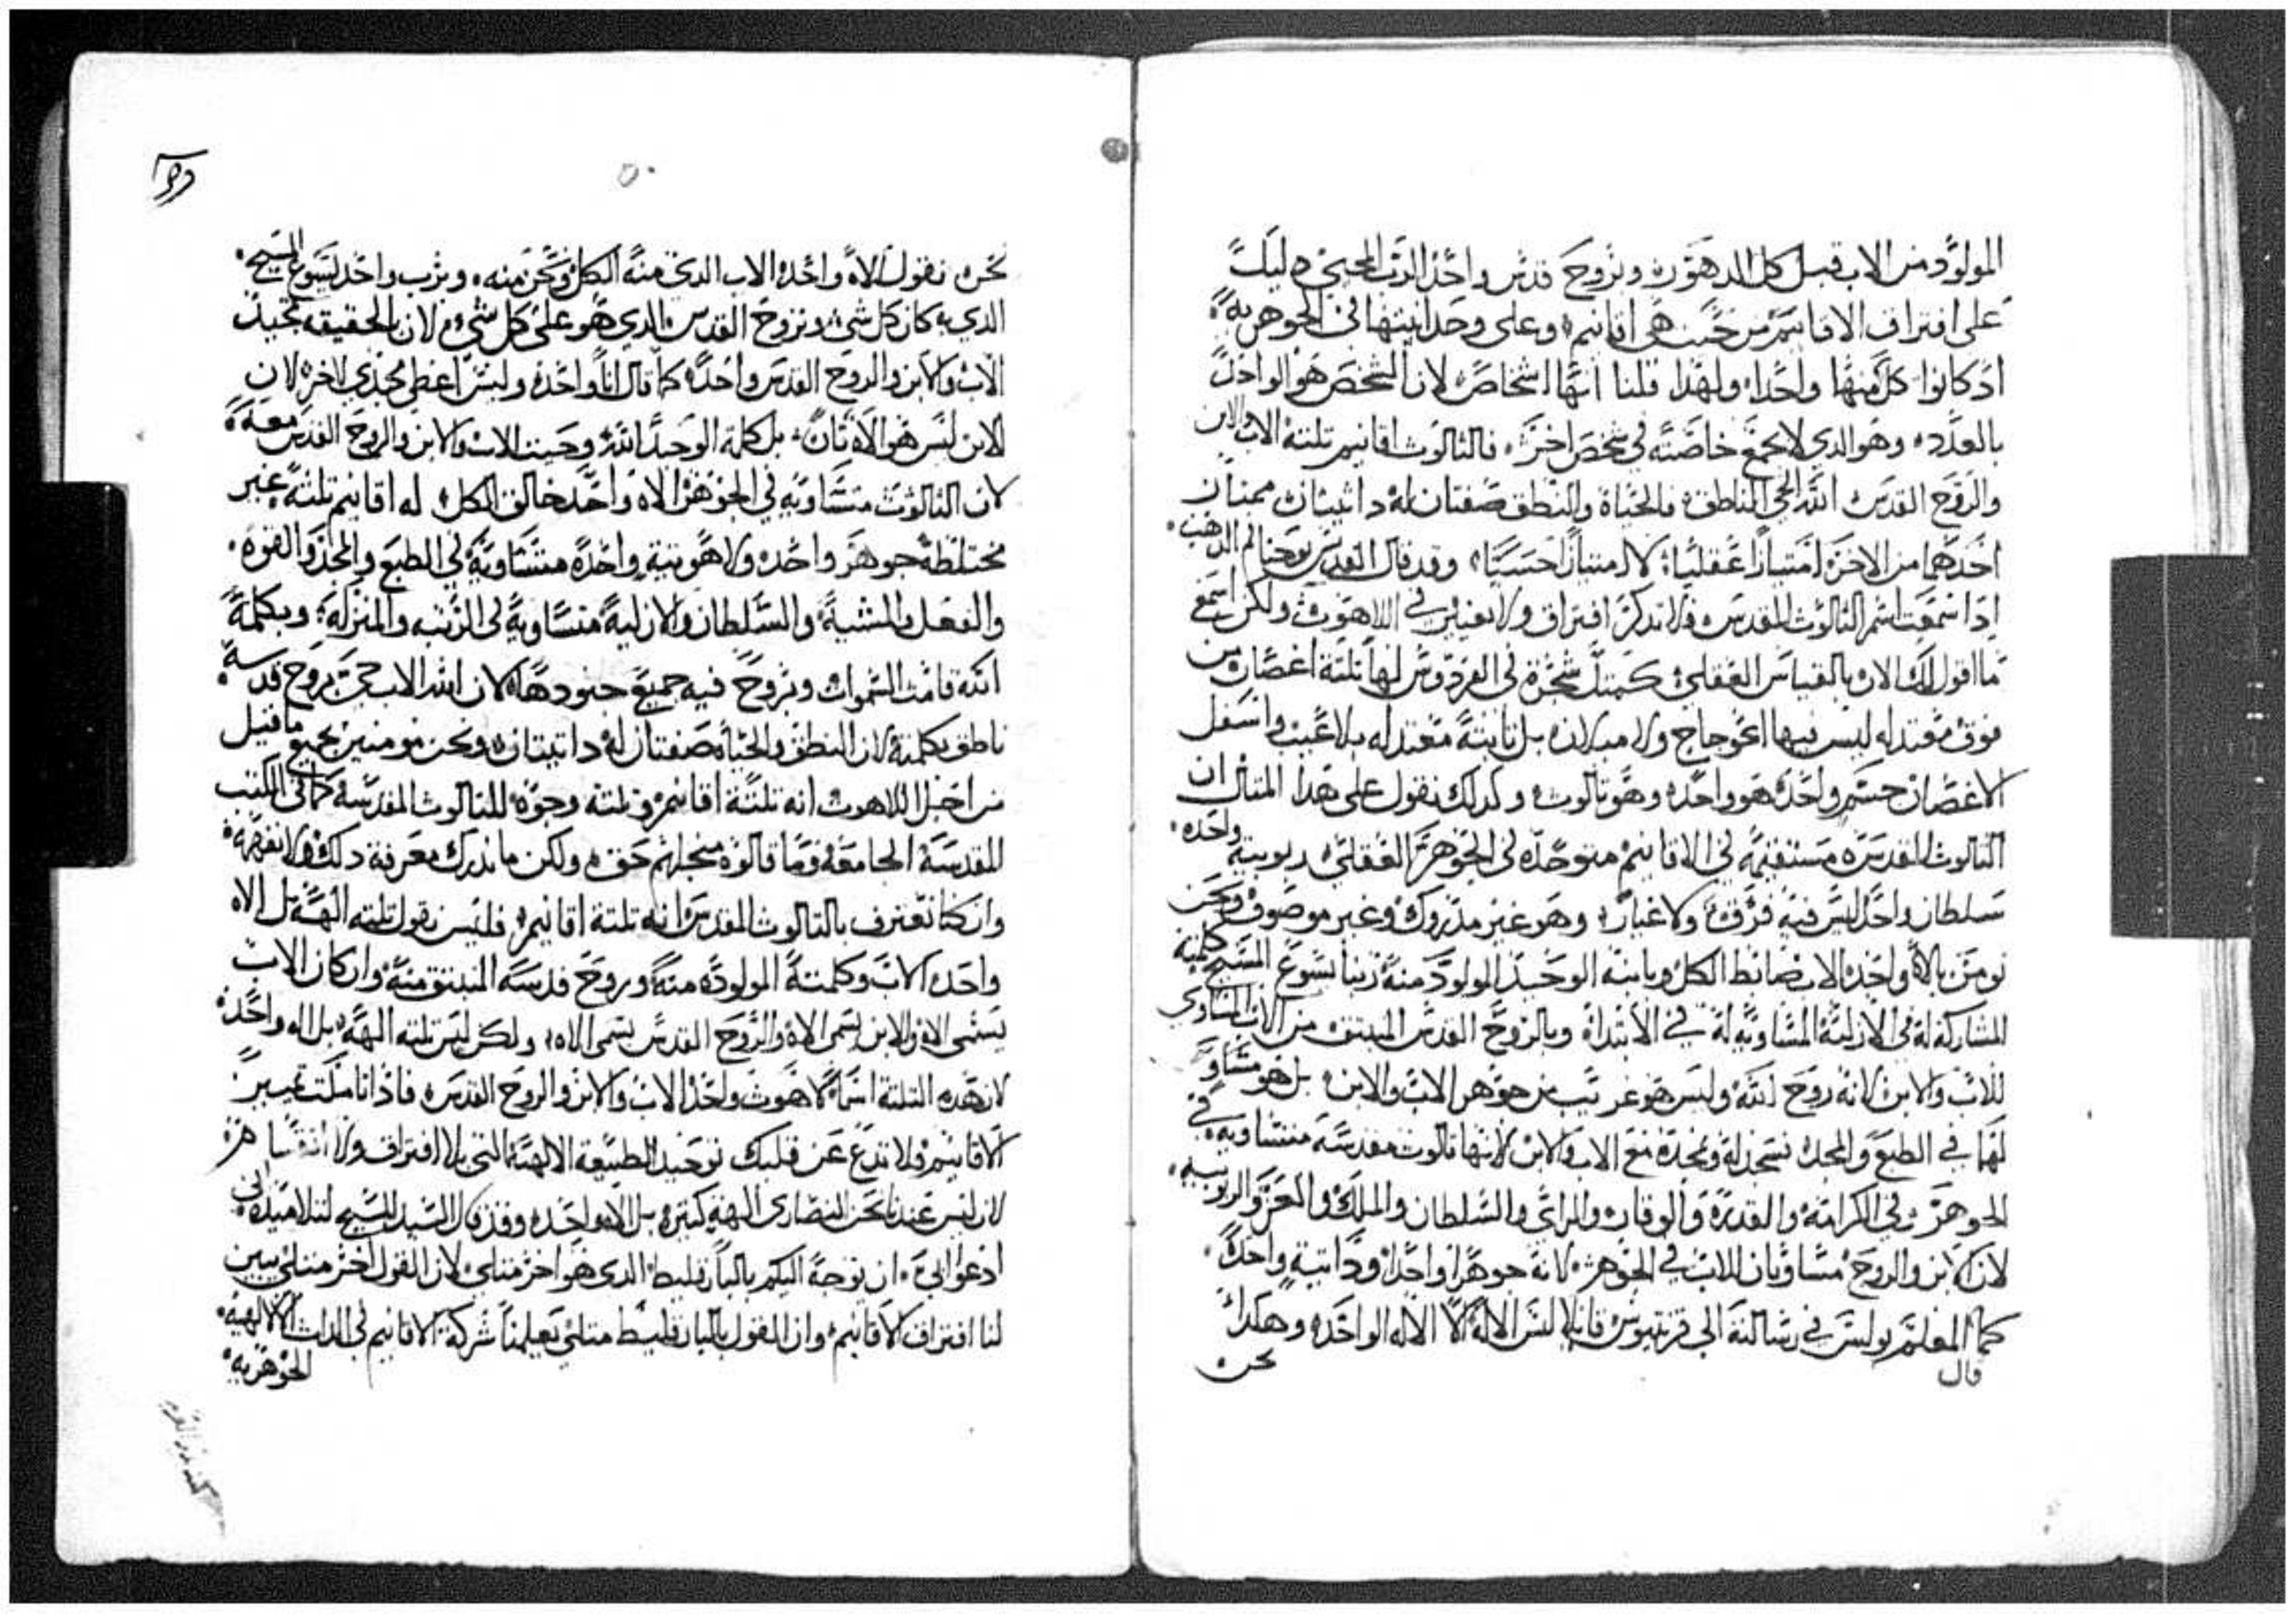 المولود من الاب قبل كل الدهور وبروح قدس واحد الرب المحيي ليدل
على افتراق الاقانيم من حيث هي اقانيم وعلى وحدانيتها في الجوهرية
اد كانوا كل منها واحدا ولهدا قلنا انها اشخاص لان الشخص هو الواحد
بالعدد وهو الدي لا يجمع خاصته في شخص اخر فالتالوت اقانيم تلتة الاب والابن
والروح القدس الله الحي الناطق فالحياة والنطق صفتان له داتيتان ممتازان
احدهما من الاخر امتيازا عقليا لا امتيازا حسيا وقد قال القديس يوحنا فم الدهب
ادا سمعت اسم التالوت المقدس فلا تدكر افتراق ولا تغيير في اللاهوت ولكن اسمع
ما اقول لك الان بالقياس العقلي كمتل شجرة في الفردوس لها تلتة اغصان من
فوق معتدله ليس فيها اعوجاج ولا ميلان بل تابتة معتدله بلا عيب واسفل
الاغصان جسم واحد هو واحد وهو تالوت وكدلك نقول على هدا المتال ان
التالوت المقدس مستقيمه في الاقانيم متوحده في الجوهر العقلي ربوبية واحده
سلطان واحد ليس فيه فرق ولا غيار وهو غير مدروك وغير موصوف ونحن
نومن بالاه واحد الاب ضابط الكل وبابنه الوحيد المولود منه ربنا يسوع المسيح كلمته
المشاركة له في الازلية المساوية له في الابتداء وبالروح القدس المنبتق من الاب المساوي
للاب والابن لانه روح الله وليس هو غريب من جوهر الاب والابن بل هو مساو
لهما في الطبع والمجد نسجد له ونمجده مع الاب والابن لانها تالوت مقدسة متساوية في
الجوهر وفي الكرامة والقدرة والوقار والراي والسلطان والملك والعز والربوبية
لان الابن والروح مساويان للاب في الجوهر لانه جوهرا واحدا وداتية واحدة
كما قال المعلم بولس في رسالته الى قرنتيوس قايلا ليس الاله الا الاله الواحد وهكدا
نحن
نحن نقول الاه واحد الاب الدي منه الكل ونحن منه وبرب واحد يسوع المسيح
الدي به كان كل شي وبروح القدس الدي هو على كل شي لان بالحقيقه تمجيد
الاب والابن والروح القدس واحدة كما قال انا واحد وليس اعطي مجدي لاخر لان
الابن ليس هو الاه تان بل كلمة الوحيد الله وحيت الاب والابن والروح القدس معه
لان التالوت متساويه في الجوهر الاه واحد خالق الكل له اقانيم تلتة غير
مختلطة جوهر واحد ولاهوتية واحدة متساوية في الطبع والمجد والقوه
والفعل والمشية والسلطان والازلية متساوية في الرتبه والمنزله وبكلمة
الله قامت السموات وبروح فيه جميع جنودها لان الله الاب حي بروح قدسه
ناطق بكلمته لان النطق والحياة صفتان له داتيتان ونحن مومنين بجميع ما قيل
من اجل اللاهوت انه تلتة اقانيم وتلتة وجوه للتالوت المقدسة كما في الكتب
المقدسة الجامعة وما قالوه من جلهم حق ولكن ما ندرك معرفة دلك ولا نعرفه
وان كنا نعترف بالتالوت المقدس انه تلتة اقانيم فليس نقول تلته الهة بل الاه
واحد الاب وكلمتة المولوده منه وروح قدسه المنبتق منه وان كان الاب
يسمى الاه والابن يسمى الاه والروح القدس يسمى الاه ولكن ليس تلته الهة بل اله واحد
لان هده التلتة اسما لاهوت واحد الاب والابن والروح القدس فادا تاملت تمييز
الاقانيم فلا تدع عن قلبك توحيد الطبيعة الالهية التي بلا افتراق ولا انقسام
لان ليس عندنا نحن النصارى الهة كتيره بل الاه واحد وقد قال السيد المسيح لتلاميده اني
ادعوا ابي ان يوجه اليكم بالبارقليط الدي هو اخر متلي لان القول اخر متلي يبين
لنا افتراق الاقانيم وان القول بالبارقليط متلي يعلمنا شركة الاقانيم في الدات الالهية
الجوهريه